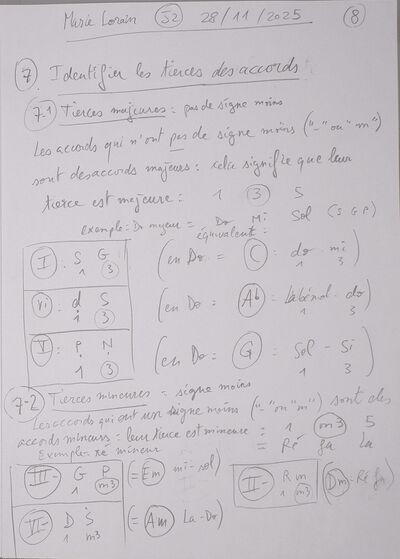 Marie Lorain S2 28/11/2025 8
7 Identifier les tierces des accords
7-1 Tierces majeures : pas de signe moins
Les accords qui n'ont pas de signe moins ("-" ou "m")
sont des accords majeurs : cela signifie que leur
tierce est majeure : 1 3 5
exemple : Do majeur = Do Mi Sol (S G P)
équivalent :
I : S G (en Do = C : do - mi)
1 3 1 3
VI : d S (en Do = Ab = Labémol - do)
1 3 1 3
V : P N (en Do = G = Sol - Si)
1 3 1 3
7-2 Tierces mineures = signe moins
Les accords qui ont un signe moins ("-" ou "m") sont des
accords mineurs : leur tierce est mineure = 1 m3 5
Exemple : ré mineur = Ré fa La
III- G P (= Em mi-sol) II- R m (Dm = Ré fa)
1 m3 1 m3
VI- D S (= Am La-Do)
1 m3